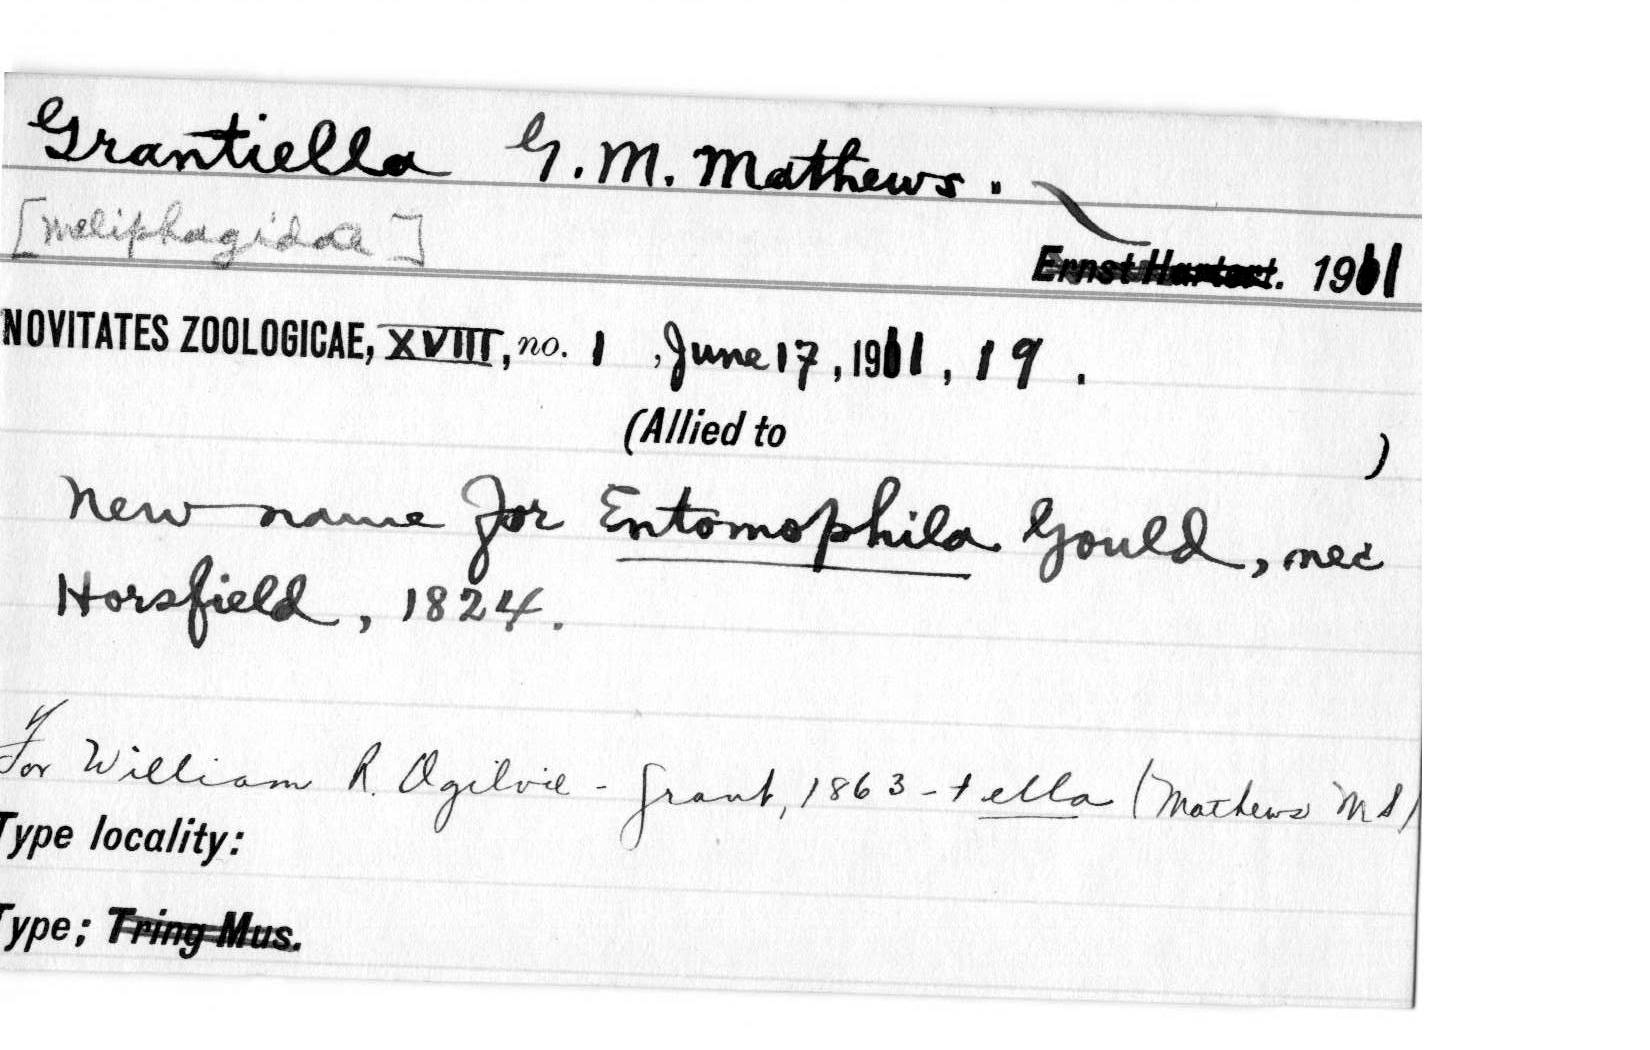 Grantiella G. M. Mathews.
[Meliphagidae]
Ernst Hartert. 1911
NOVITATES ZOOLOGICAE, XVIII, no. 1, June 17, 1911, 19.
(Allied to )
New name for Entomophila Gould, nec
Horsfield, 1824.
For William R. Ogilvie-Grant, 1863 - + ella (Mathews MS)
Type locality:
Type; Tring Mus.